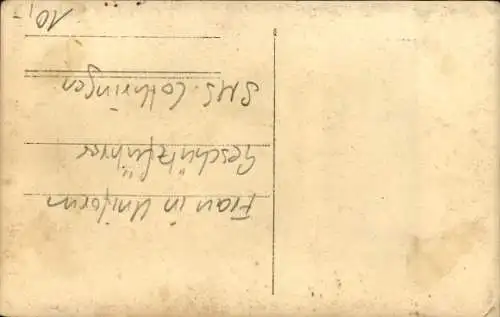 Frau in Uniform
Geschützführer
SMS. Lothringen
10,-